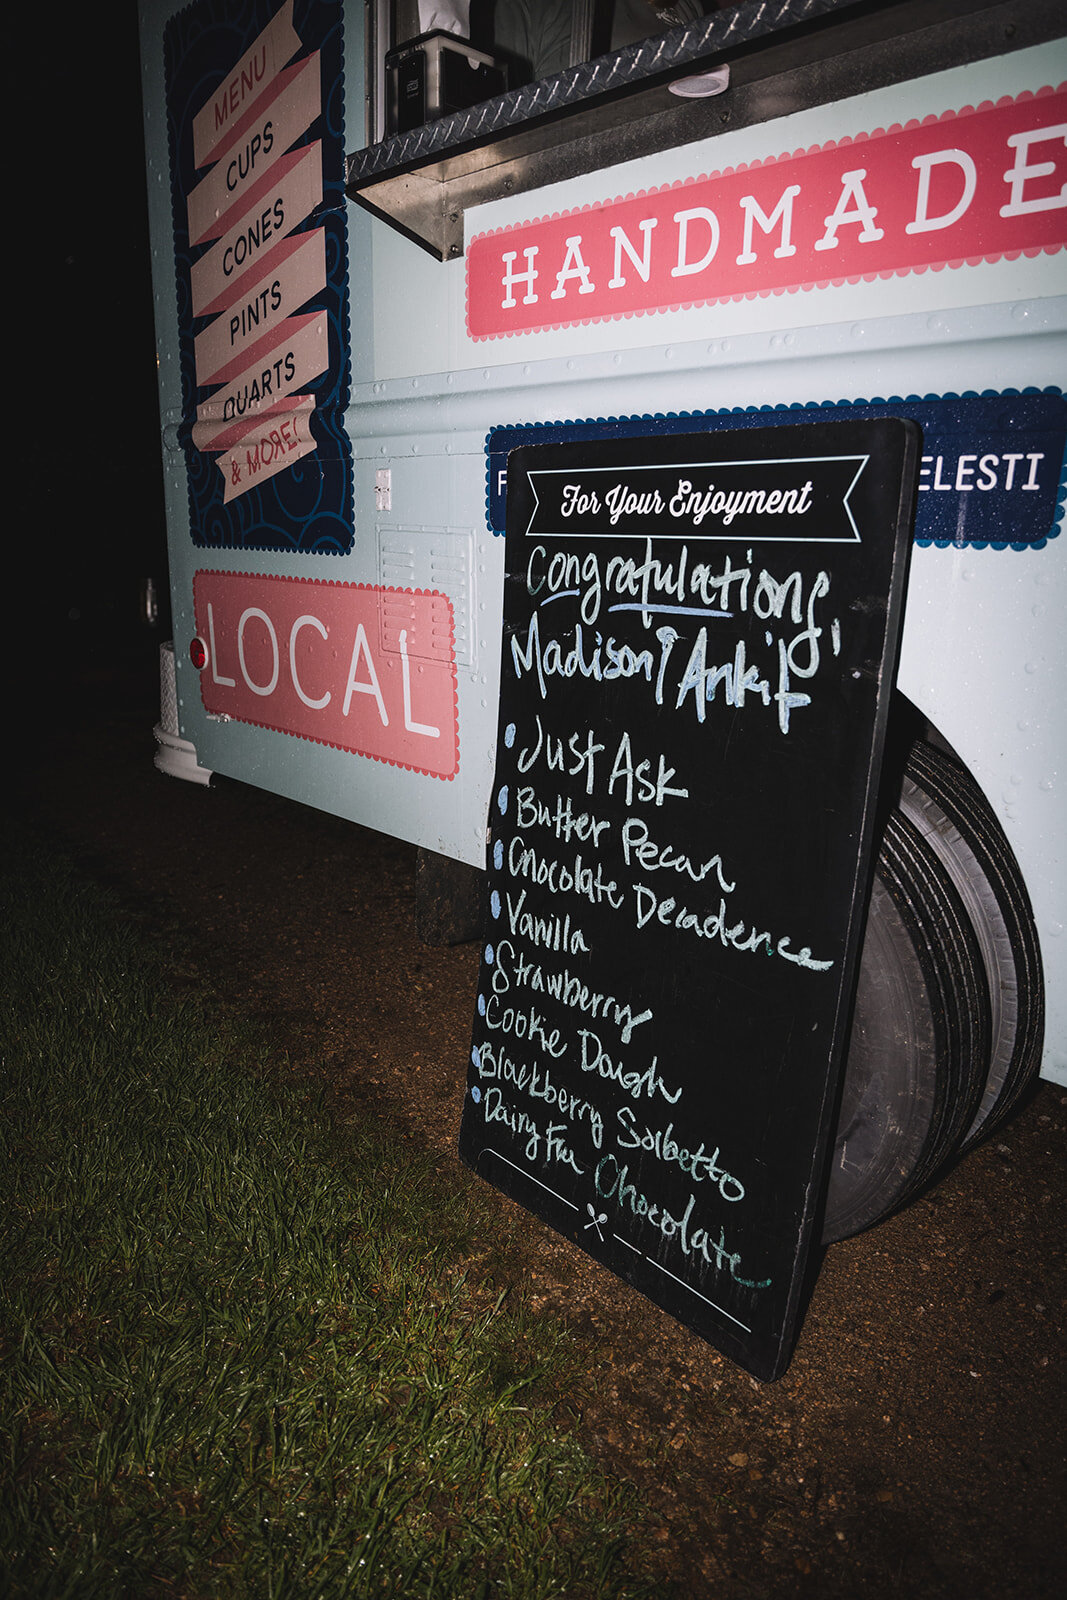 MENU
CUPS
CONES
PINTS
QUARTS
& MORE!
HANDMADE
F
ELESTI
LOCAL
For Your Enjoyment
Congratulations,
Madison & Ankit
• Just Ask
• Butter Pecan
• Chocolate Decadence
• Vanilla
• Strawberry
• Cookie Dough
• Blackberry Sorbetto
• Dairy Free Chocolate